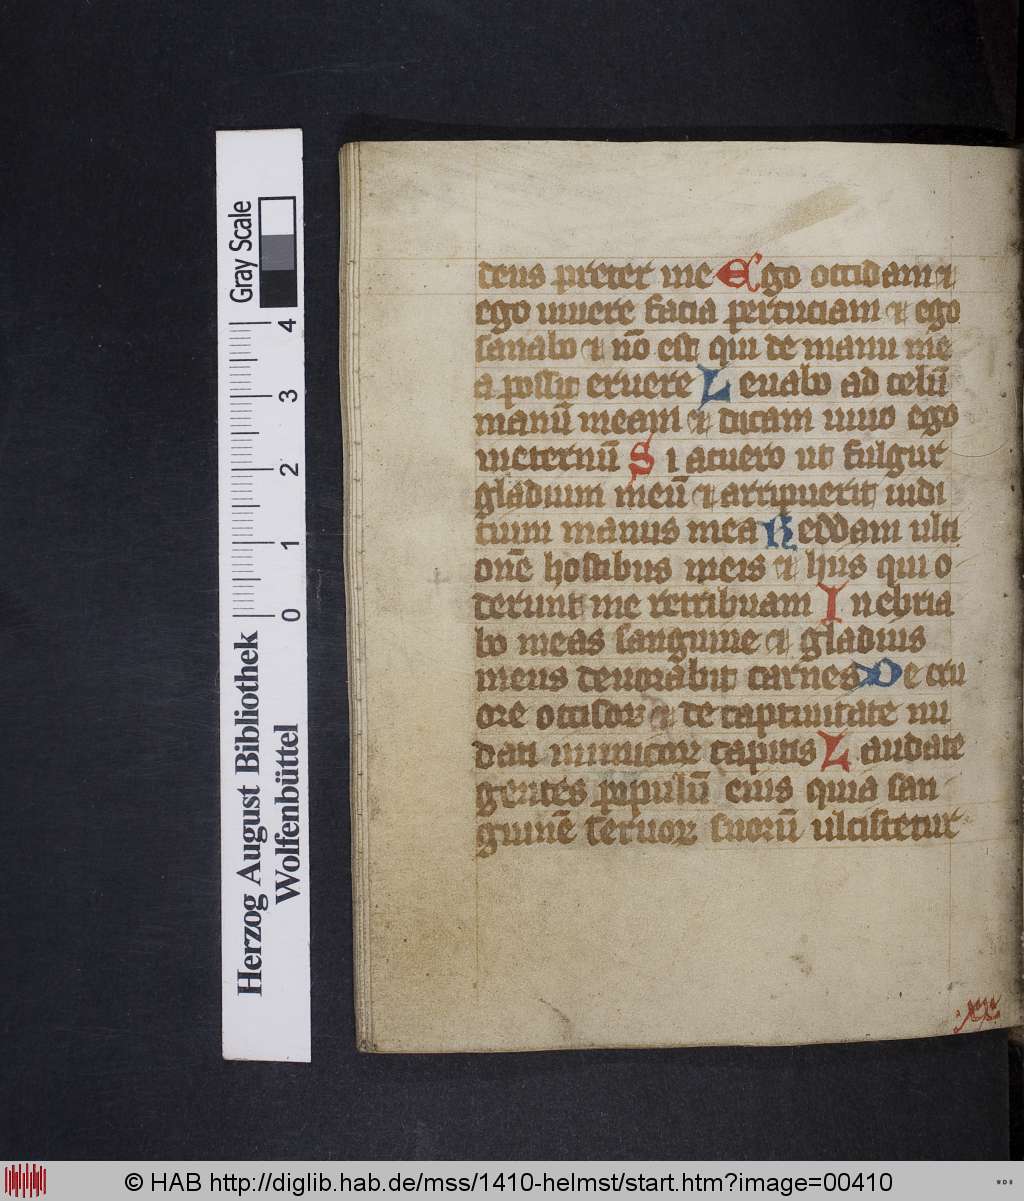 deus preter me Ego occidam ⁊
ego viuere facia percuciam ⁊ ego
sanabo ⁊ nō est qui de manu me
a possit eruere Leuabo ad celū
manū meam ⁊ dicam viuo ego
ineternū Si acuero ut fulgur
gladium meū ⁊ arripuerit iudi
cium manus mea Reddam ulti
onē hostibus meis ⁊ hiis qui o
derunt me retribuam Inebria
bo meas sanguine ⁊ gladius
meus deuorabit carnes De cru
ore occisoꝝ ⁊ de captiuitate nu
dati inimicoꝝ capitis Laudate
gentes pipulū eius quia san
guinē seruoꝝ suorū ulciscetur
xx
Gray Scale
0 1 2 3 4
Herzog August Bibliothek
Wolfenbüttel
© HAB http://diglib.hab.de/mss/1410-helmst/start.htm?image=00410